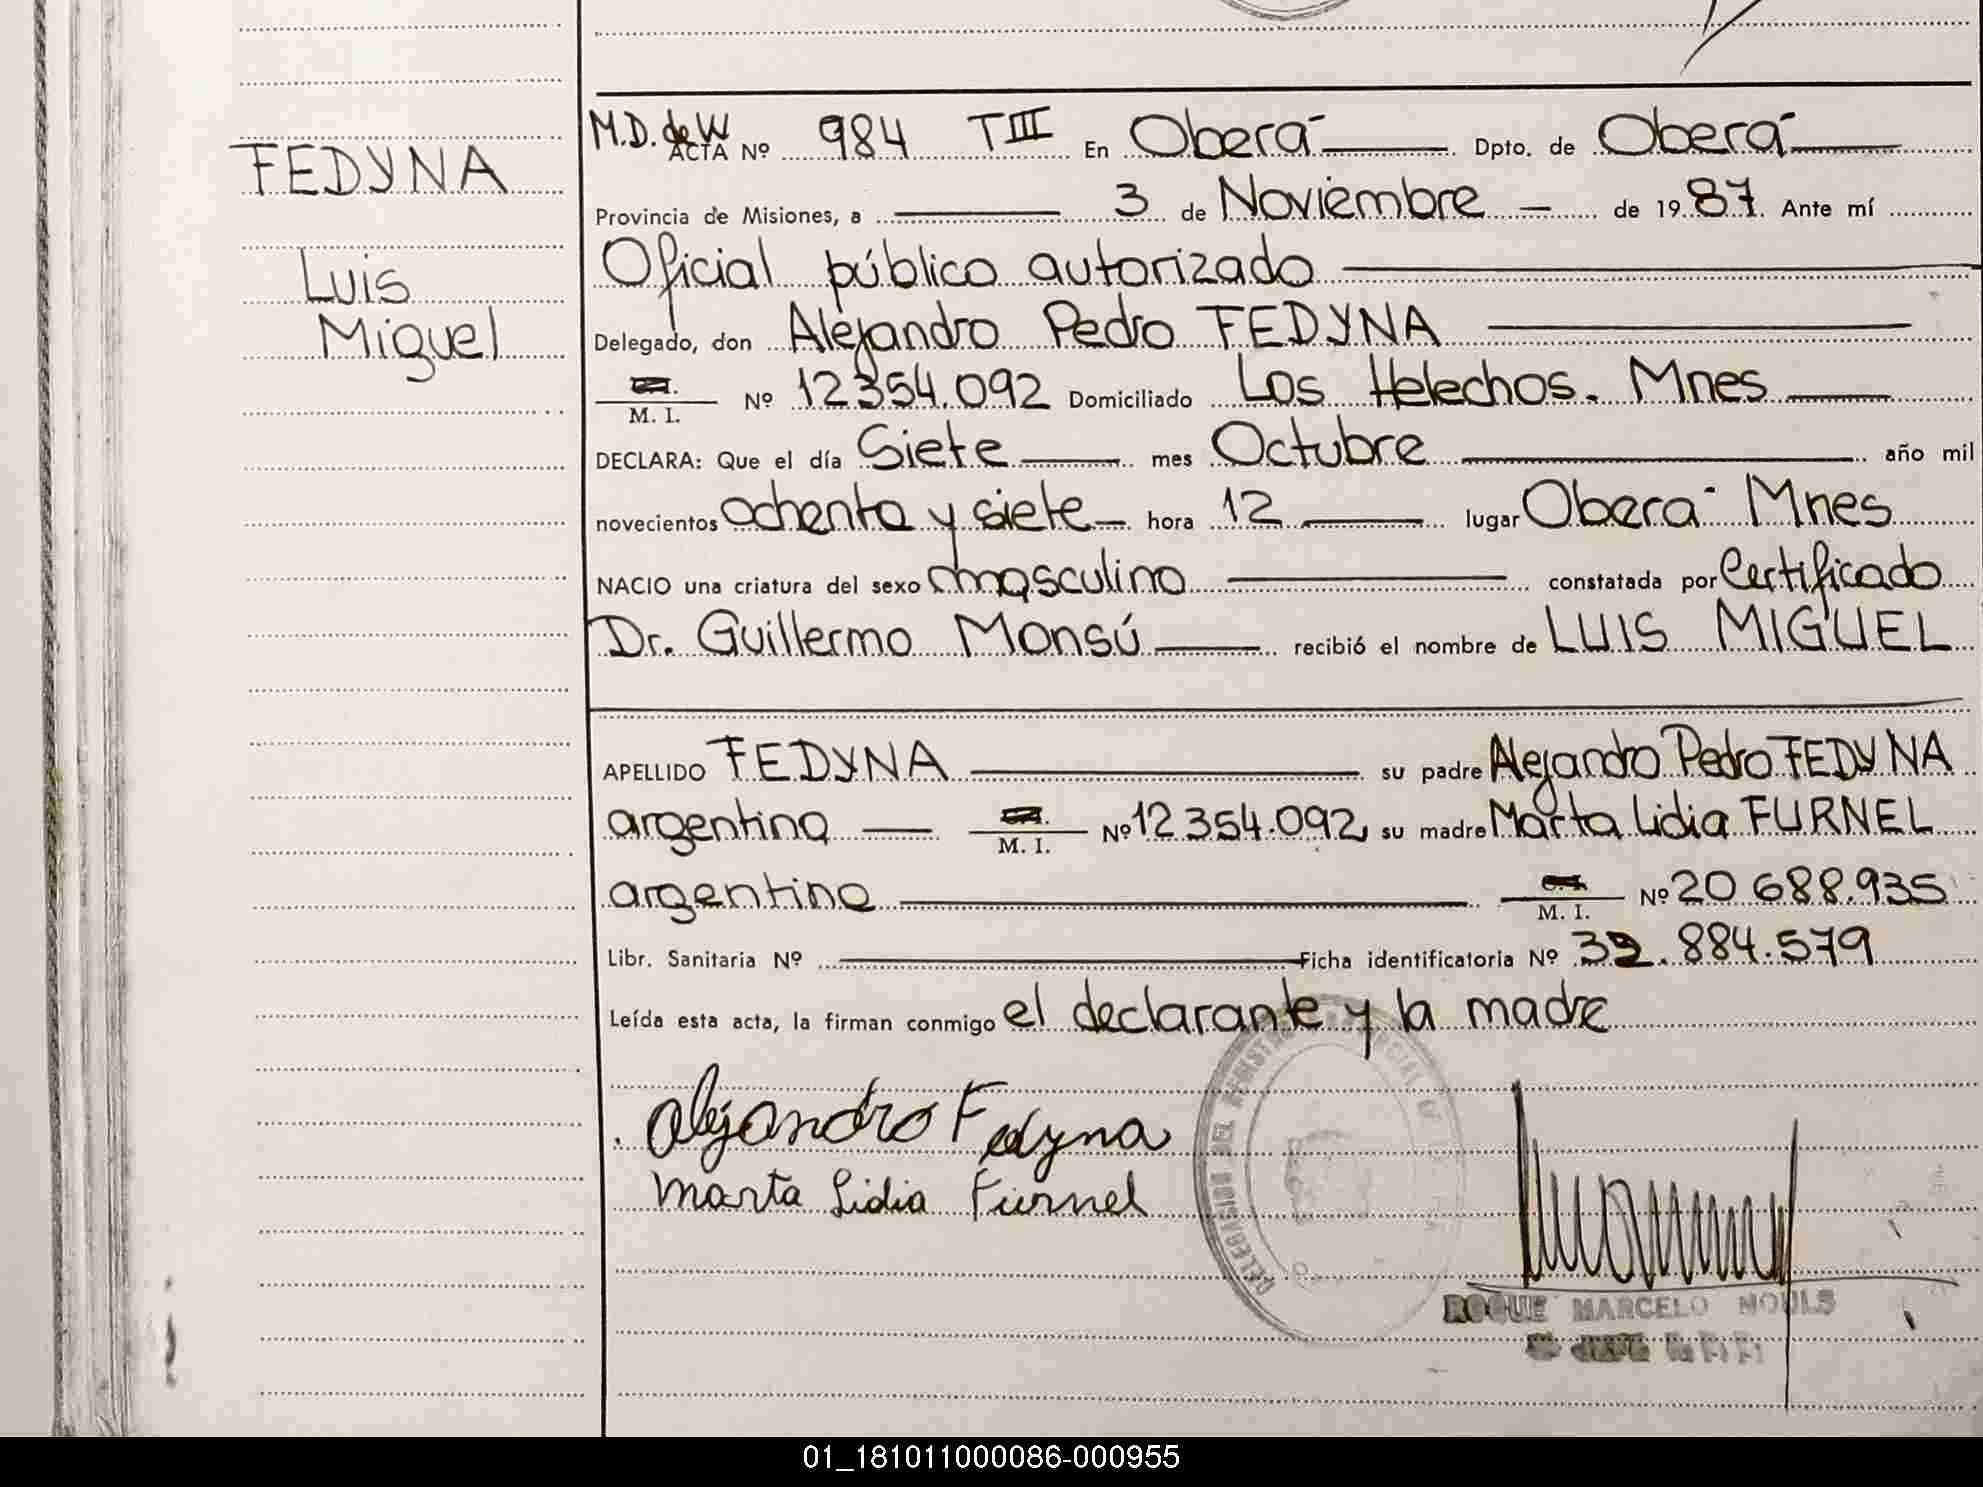 FEDYNA
Luis
Miguel
M.D. de W
ACTA Nº 984 TIII En Oberá Dpto. de Oberá
Provincia de Misiones, a 3 de Noviembre de 1987 Ante mí
Oficial público autorizado
Delegado, don Alejandro Pedro FEDYNA
M. I. Nº 12354.092 Domiciliado Los Helechos. Mnes
DECLARA: Que el día Siete mes Octubre año mil
novecientos ochenta y siete hora 12 lugar Oberá Mnes
NACIO una criatura del sexo masculino constatada por Certificado
Dr. Guillermo Monsú recibió el nombre de LUIS MIGUEL
APELLIDO FEDYNA su padre Alejandro Pedro FEDYNA
argentina M. I. Nº 12354.092, su madre Marta Lidia FURNEL
argentina M. I. Nº 20.688.935
Libr. Sanitaria Nº Ficha identificatoria Nº 32.884.579
Leída esta acta, la firman conmigo el declarante y la madre
Alejandro Fedyna
Marta Lidia Furnel
ROQUE MARCELO
01_181011000086-000955